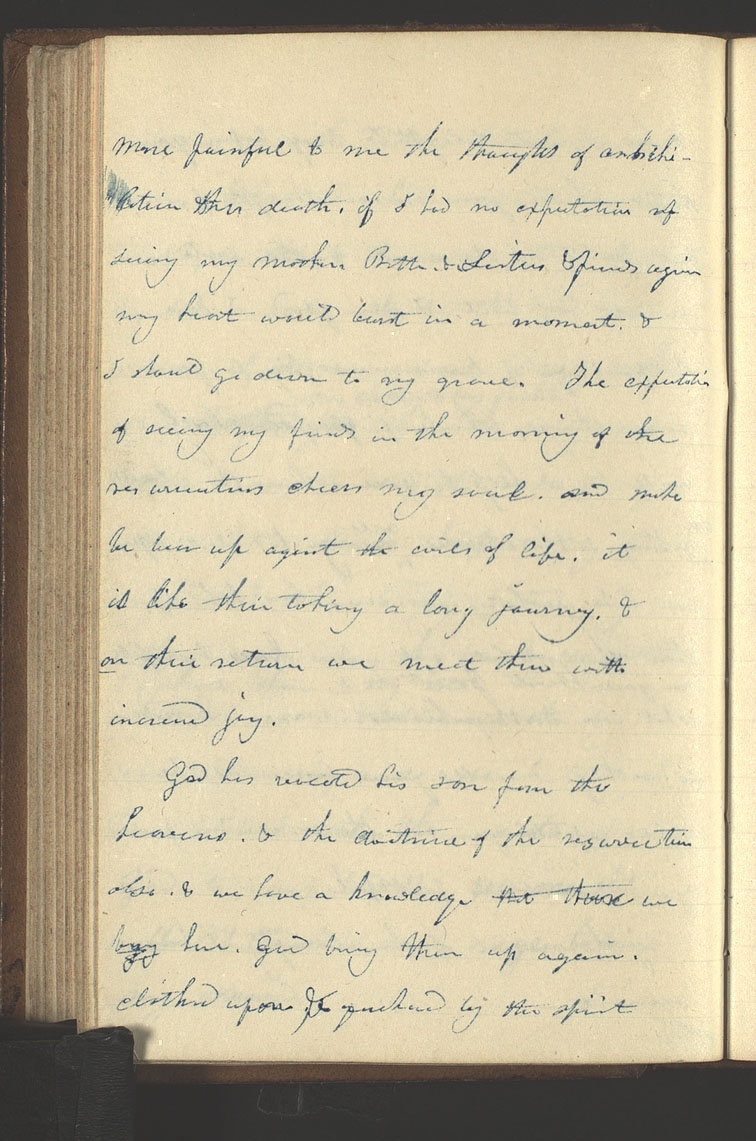 more painful to me the thoughts of anhihi-
lation than death. if I had no expectation of
seeing my mother Broth. & Sisters & friends again
my heart would burst in a moment. &
I should go down to my grave. The expectation
of seeing my friends in the morning of the
resurrection cheers my soul. and make
be bear up against the evils of life. it
is like their taking a long journey. &
on their return we meet them with
increased joy.
God has revealed his son from the
heavens. & the doctrine of the resurrection
also. & we have a knowledge that those we
bury here. God bring them up again.
clothed upon & quickened by the spirit